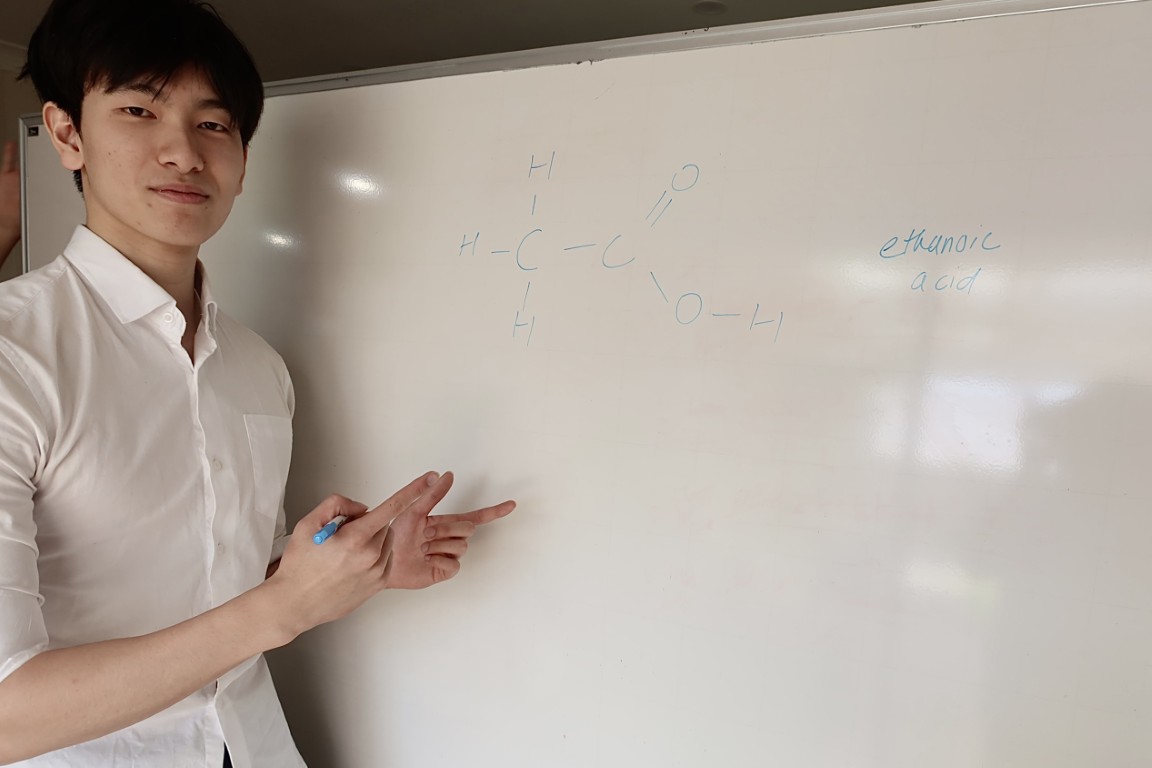 H O
H - C - C
H O - H
ethanoic
acid